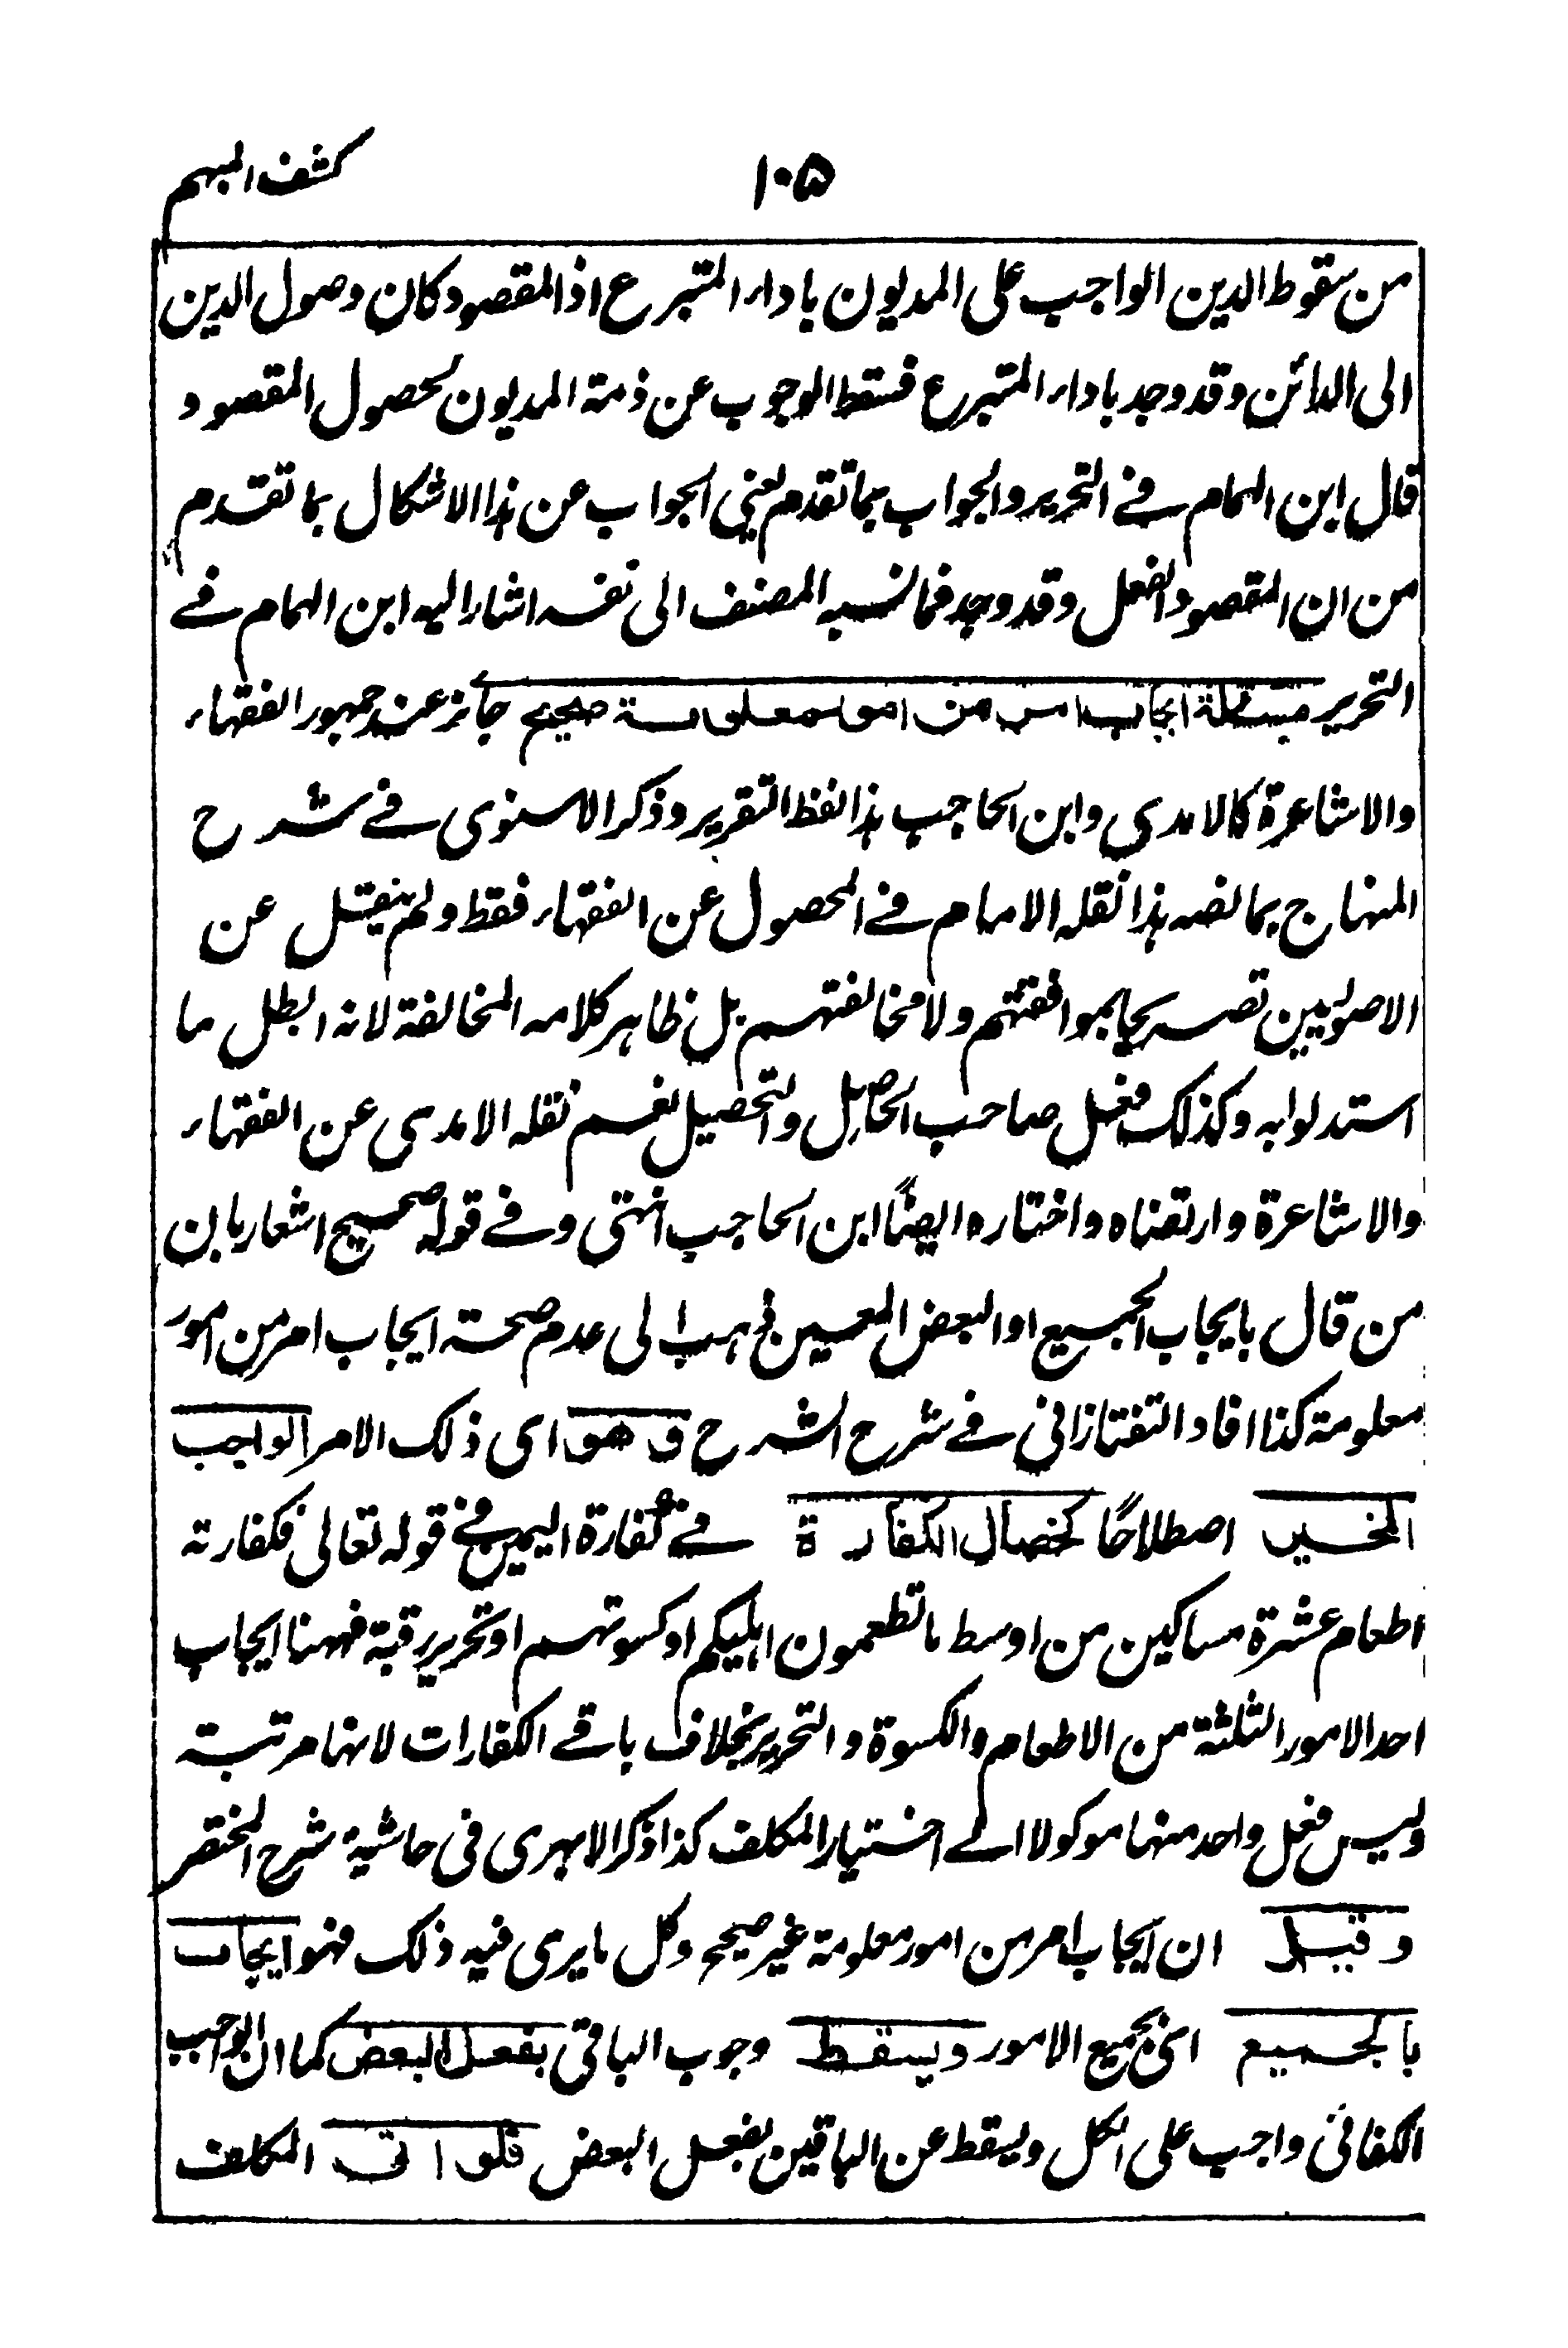 كشف المبهم
١٠٥
من سقوط الدين الواجب على المديون باداء المتبرع اذ المقصود كان وصول الدين
الى الدائن وقد وجد باداء المتبرع فسقط الوجوب عن ذمة المديون لحصول المقصود
قال ابن الهمام فى التحرير والجواب بما تقدم يعنى الجواب عن هذا الاشكال بما تقدم
من ان المقصود الفعل وقد وجد فما نسبه المصنف الى نفسه اشار اليه ابن الهمام فى
التحرير مسئلة ايجاب امر من امور معلومة صحيح جائز عند جمهور الفقهاء
والاشاعرة كالامدى وابن الحاجب هذا لفظ التقرير وذكر الاسنوى فى شرح
المنهاج بما نصه هذا نقله الامام فى المحصول عن الفقهاء فقط ولم ينقل عن
الاصوليين تصريحا بموافقتهم ولا مخالفتهم بل ظاهر كلامه المخالفة لانه ابطل ما
استدلوا به وكذلك فعل صاحب الحاصل والتحصيل نعم نقله الامدى عن الفقهاء
والاشاعرة وارتضاه واختاره ايضًا ابن الحاجب انتهى وفى قوله صحيح اشعار بان
من قال بايجاب الجميع او البعض المعين ذهب الى عدم صحة ايجاب امر من امور
معلومة كذا افاد التفتازانى فى شرح الشرح وهو اى ذلك الامر الواجب
المخير اصطلاحًا كخصال الكفارة فى كفارة اليمين فى قوله تعالى فكفارته
اطعام عشرة مساكين من اوسط ما تطعمون اهليكم او كسوتهم او تحرير رقبة فههنا ايجاب
احد الامور الثلثة من الاطعام والكسوة والتحرير بخلاف باقى الكفارات لانها مرتبة
وليس فعل واحد منها موكولا الى اختيار المكلف كذا ذكر الابهرى فى حاشية شرح المختصر
وقيل ان ايجاب امر من امور معلومة غير صحيح وكل ما يرى فيه ذلك فهو ايجاب
بالجميع اى بجميع الامور ويسقط وجوب الباقى بفعل البعض كما ان الواجب
الكفائى واجب على الكل ويسقط عن الباقين بفعل البعض فلو اتى المكلف